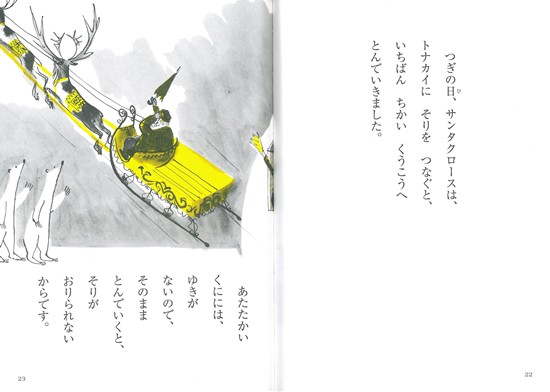 つぎの日、サンタクロースは、
トナカイに　そりを　つなぐと、
いちばん　ちかい　くうこうへ
とんでいきました。
22
あたたかい
くにには、
ゆきが
ないので、
そのまま
とんでいくと、
そりが
おりられない
からです。
23